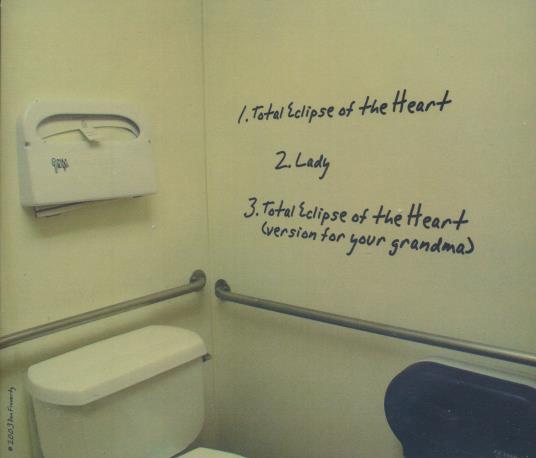 1. Total Eclipse of the Heart
2. Lady
3. Total Eclipse of the Heart
(version for your grandma)
© 2003 Dan Finnerty